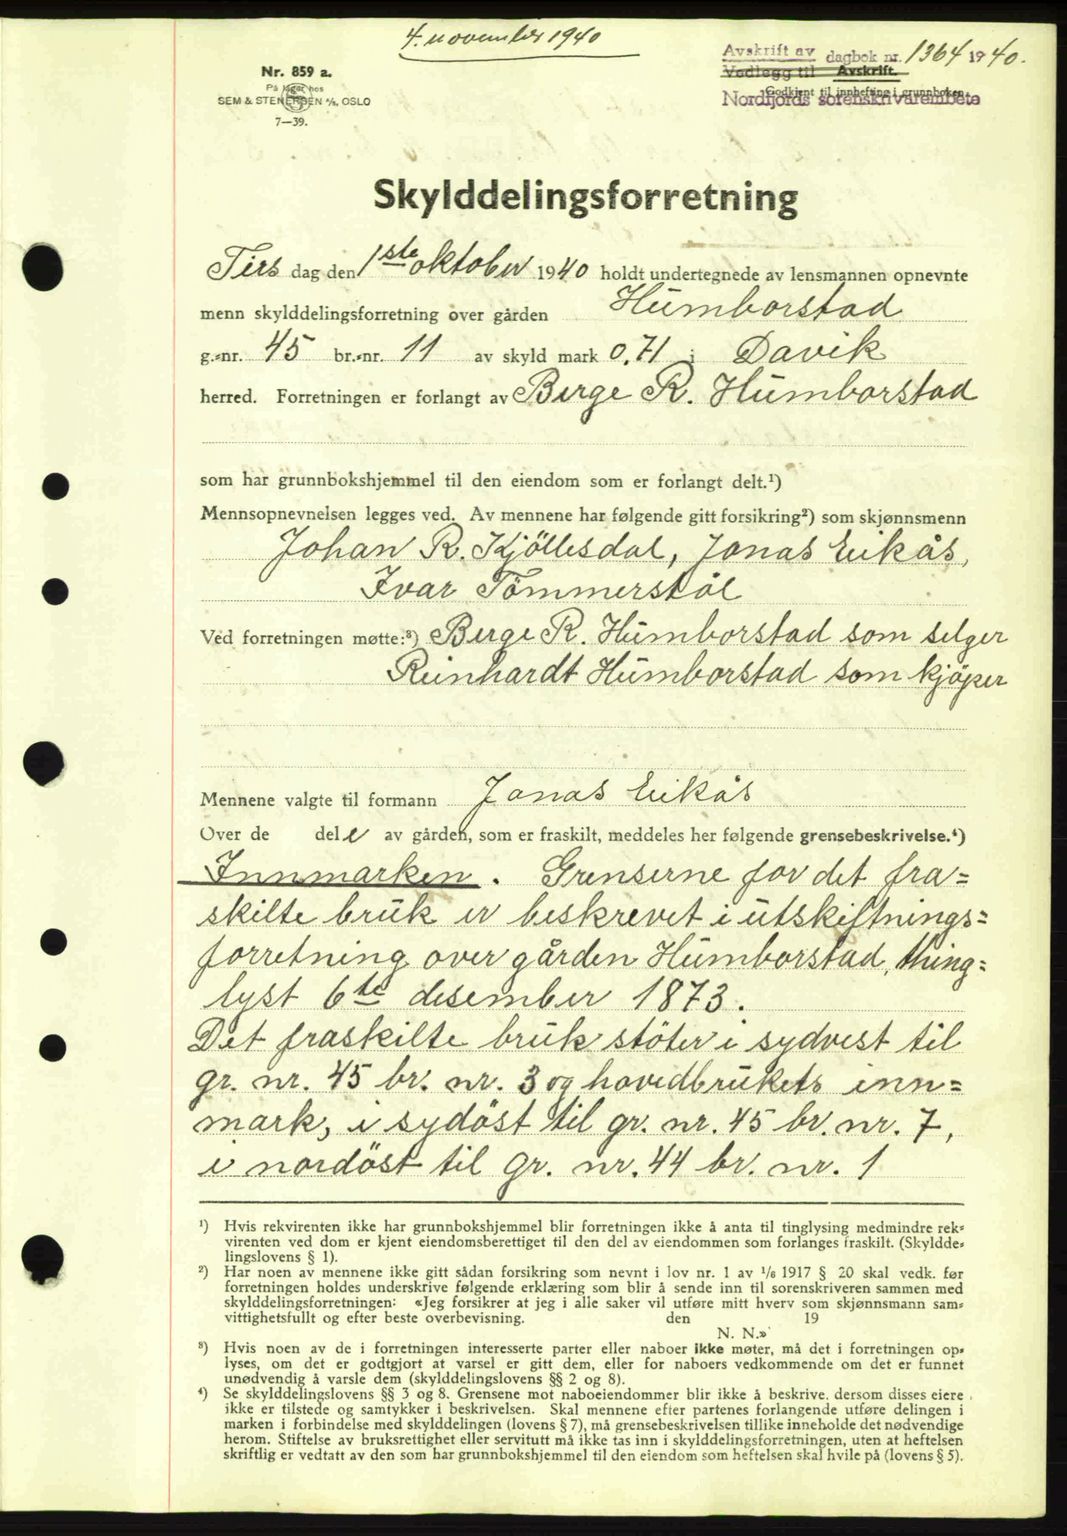 4. november 1940
Avskrift av dagbok nr. 1364 1940.
Vedlegg til Avskrift.
Godkjent til innhefting i grunnboken
Nordfjords sorenskrivarembete
Nr. 859 a.
På lager hos
SEM & STENERSEN A/S, OSLO
7—39.
Skylddelingsforretning
Tirs dag den 1ste oktober 1940 holdt undertegnede av lensmannen opnevnte
menn skylddelingsforretning over gården Humborstad
g.-nr. 45 br.-nr. 11 av skyld mark 0,71 i Davik
herred. Forretningen er forlangt av Berge R. Humborstad
som har grunnbokshjemmel til den eiendom som er forlangt delt.¹)
Mennsopnevnelsen legges ved. Av mennene har følgende gitt forsikring²) som skjønnsmenn
Johan R. Kjöllesdal, Jonas Eikås,
Ivar Tömmerstöl
Ved forretningen møtte:³) Berge R. Humborstad som selger
Reinhardt Humborstad som kjöper
Mennene valgte til formann Jonas Eikås
Over de dele av gården, som er fraskilt, meddeles her følgende grensebeskrivelse.⁴)
Innmarken. Grenserne for det fra=
skilte bruk er beskrevet i utskiftnings=
forretning over gården Humborstad, thing=
lyst 6te desember 1873.
Det fraskilte bruk stöter i sydvest til
gr. nr. 45 br. nr. 3 og hovedbrukets inn=
mark, i sydöst til gr. nr. 45 br. nr. 7,
i nordöst til gr. nr. 44 br. nr. 1
¹) Hvis rekvirenten ikke har grunnbokshjemmel blir forretningen ikke å anta til tinglysing medmindre rek-
virenten ved dom er kjent eiendomsberettiget til den del av eiendommen som forlanges fraskilt. (Skyldde-
lingslovens § 1).
²) Har noen av mennene ikke gitt sådan forsikring som nevnt i lov nr. 1 av 1/6 1917 § 20 skal vedk. før
forretningen holdes underskrive følgende erklæring som blir å sende inn til sorenskriveren sammen med
skylddelingsforretningen: «Jeg forsikrer at jeg i alle saker vil utføre mitt hverv som skjønnsmann sam-
vittighetsfullt og efter beste overbevisning. den 19
N. N.»
³) Hvis noen av de i forretningen interesserte parter eller naboer ikke møter, må det i forretningen op-
lyses, om det er godtgjort at varsel er gitt dem, eller for naboers vedkommende om det er funnet
unødvendig å varsle dem (skylddelingslovens §§ 2 og 8).
⁴) Se skylddelingslovens §§ 3 og 8. Grensene mot naboeiendommer blir ikke å beskrive, dersom disses eiere
ikke er tilstede og samtykker i beskrivelsen. Skal mennene efter partenes forlangende utføre delingen i
marken i forbindelse med skylddelingen (lovens § 7), må grensebeskrivelsen tillike inneholde det nødvendige
herom. Stiftelse av bruksrettighet eller servitutt må ikke tas inn i skylddelingsforretningen, uten at heftelsen
skriftlig er vedtatt av den som har grunnbokshjemmel til den eiendom som heftelsen skal hvile på (lovens § 5).